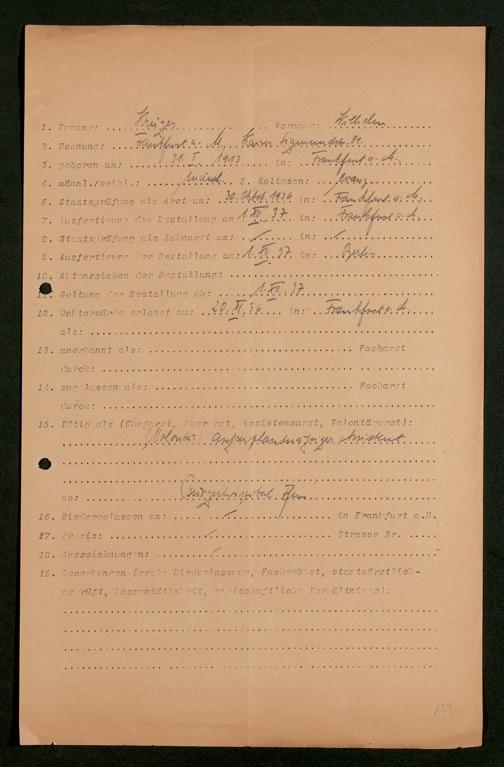 1. Zuname: Krüger Vorname: Wilhelm
2. Wohnung: Frankfurt a. M., Kaiser Sigmundstr.
3. geboren am: 31. I. 1913 in: Frankfurt a. M.
4. männl./weibl.: männl. 5. Religion: evang
6. Staatsprüfung als Arzt am: 30. Oktob. 1936 in: Frankfurt a. M.
7. Ausfertigung der Bestallung am 1. XII. 37 in: Frankfurt a. M.
8. Staatsprüfung als Zahnarzt am: in:
9. Ausfertigung der Bestallung am: 1. 37 in: Berlin
10. Aktenzeichen der Bestallung:
11. Geltung der Bestallung ab: 1. XII. 37
12. Doktorwürde erlangt am: 20. XI. 36 in: Frankfurt a. M.
als:
13. anerkannt als: Facharzt
durch:
14. zugelassen als: Facharzt
durch:
15. Tätig als (Chefarzt, Oberarzt, Assistenzarzt, Volontärarzt):
(Volontär) Außerplanmäßiger Assistent
wo:
16. Niedergelassen am: in Frankfurt a.M.
17. Praxis: Strasse Nr.
18. Auszeichnungen:
19. Bemerkungen (erste Niederlassung, Fachgebiet, staatsärztlich-
geprüft, Kassentätigkeit, wirtschaftliche Verhältnisse):
129